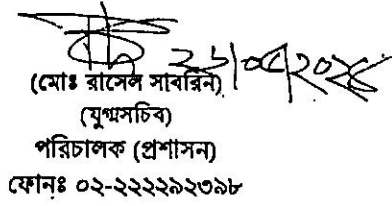 (মোঃ রাসেল সাবরিন)
(যুগ্মসচিব)
পরিচালক (প্রশাসন)
ফোনঃ ০২-২২২২৯২৩৯৮